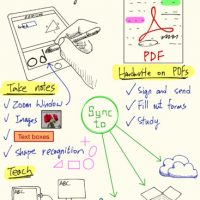 PDF
Take notes
Handwrite on PDFs
✓ Zoom window
✓ Sign and send
✓ Images
✓ Fill out forms
✓ Text boxes
✓ Study
✓ Shape recognition
Sync
to
Teach
ABC
ABC